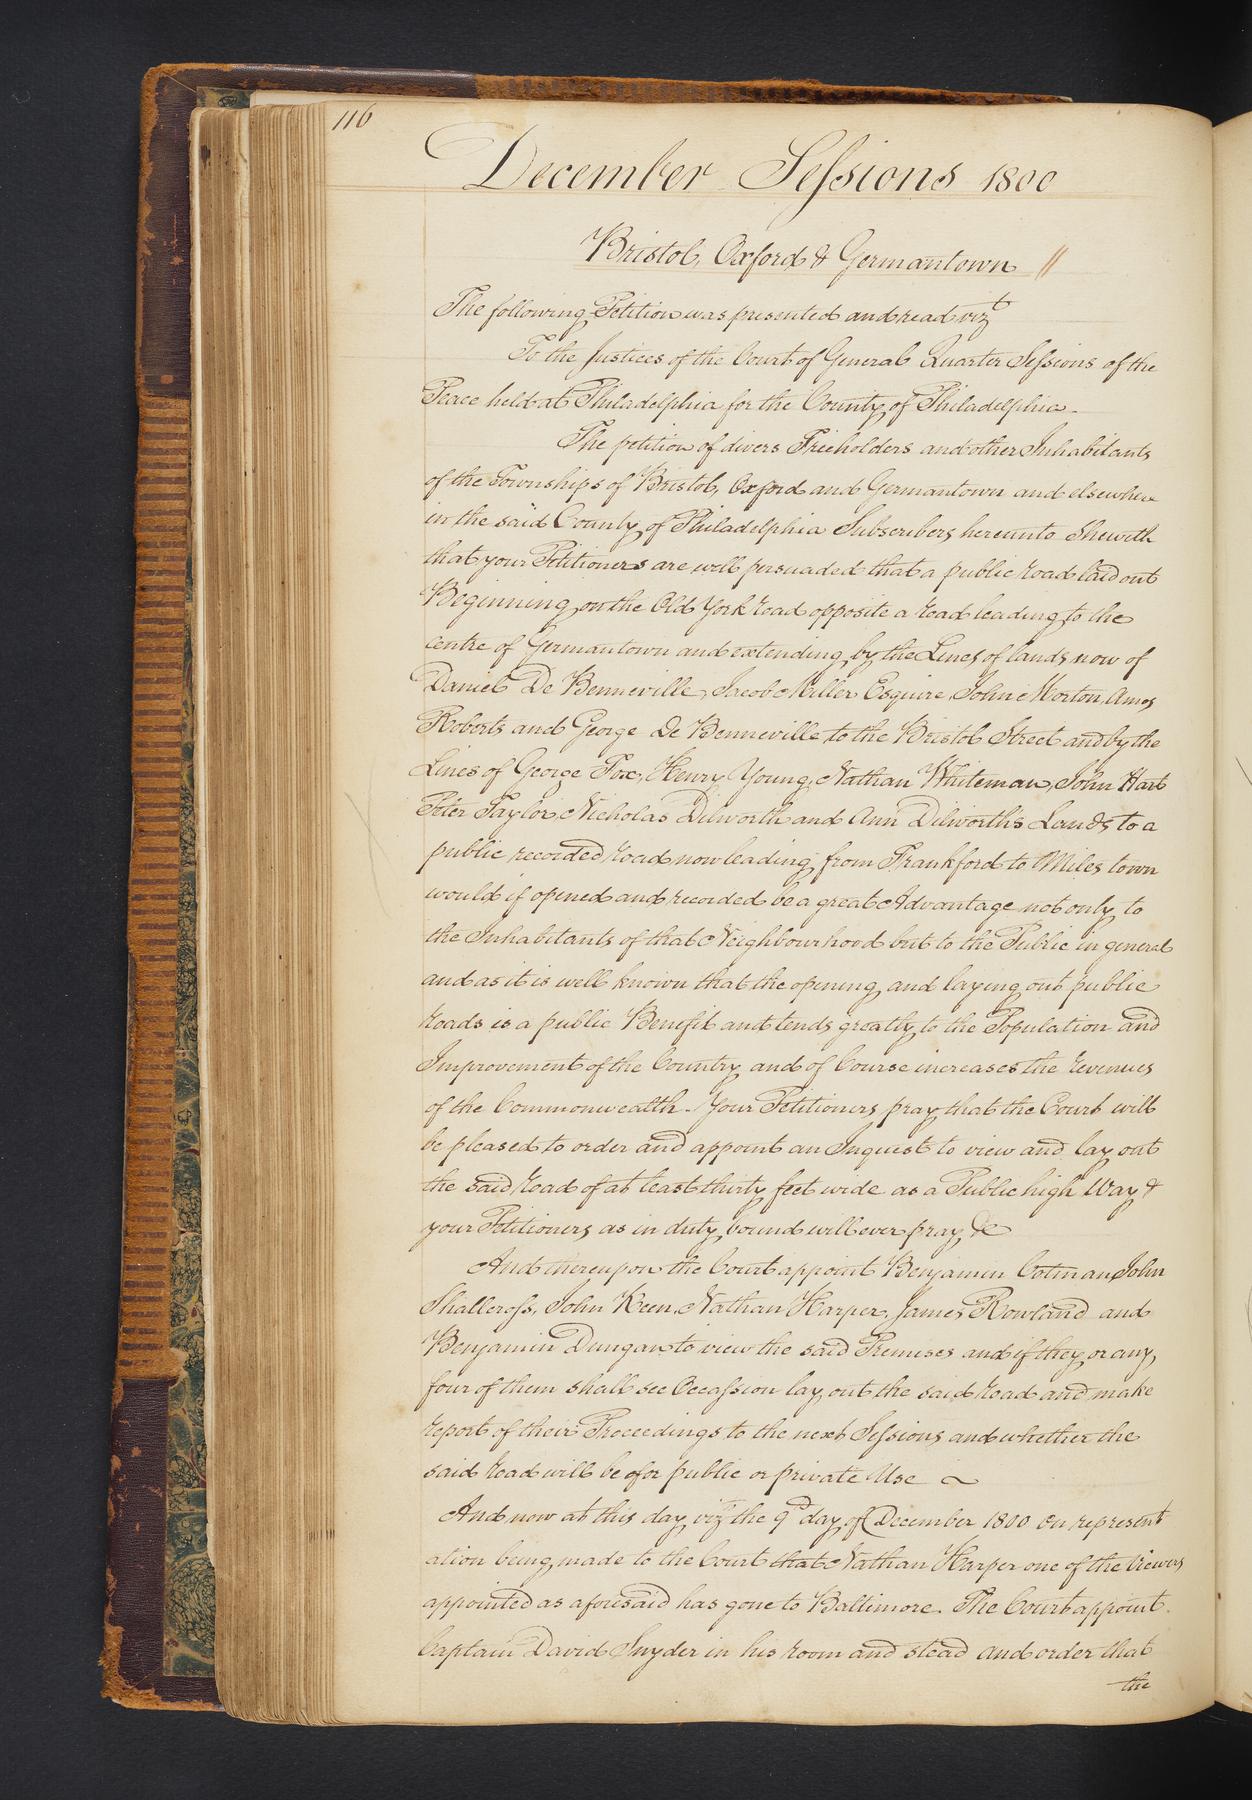 116
December Sessions 1800
Bristol, Oxford & Germantown //
The following Petition was presented and read vizt
To the Justices of the Court of General Quarter Sessions of the
Peace held at Philadelphia for the County of Philadelphia.
The petition of divers Freeholders and other Inhabitants
of the Townships of Bristol, Oxford and Germantown and elsewhere
in the said County of Philadelphia Subscribers hereunto Sheweth
that your Petitioners are well persuaded that a public road laid out
Beginning on the Old York road opposite a road leading to the
centre of Germantown and extending by the Lines of lands now of
Daniel De Benneville, Jacob Miller Esquire, John Morton, Amos
Roberts and George De Benneville to the Bristol Street and by the
Lines of George Fox, Henry Young, Nathan Whiteman, John Hart
Peter Taylor, Nicholas Dilworth and Ann Dilworth's Lands to a
public recorded road now leading from Frankford to Miles town
would if opened and recorded be a great Advantage not only to
the Inhabitants of that Neighbourhood but to the Public in general
and as it is well known that the opening and laying out public
roads is a public Benefit and tends greatly to the Population and
Improvement of the Country and of Course increases the revenues
of the Commonwealth. Your Petitioners pray that the Court will
be pleased to order and appoint an Inquest to view and lay out
the said road of at least thirty feet wide as a Public high Way &
your Petitioners as in duty bound will ever pray &c
And thereupon the Court appoint Benjamin Cotman, John
Shallcross, John Keen, Nathan Harper, James Rowland and
Benjamin Dungan to view the said Premises and if they or any
four of them shall see Occassion lay out the said road and make
report of their Proceedings to the next Sessions and whether the
said road will be for public or private Use
And now at this day vizt the 9th day of December 1800 on represent
ation being made to the Court that Nathan Harper one of the Viewers
appointed as aforesaid has gone to Baltimore. The Court appoint
Captain David Snyder in his room and stead and order that
the